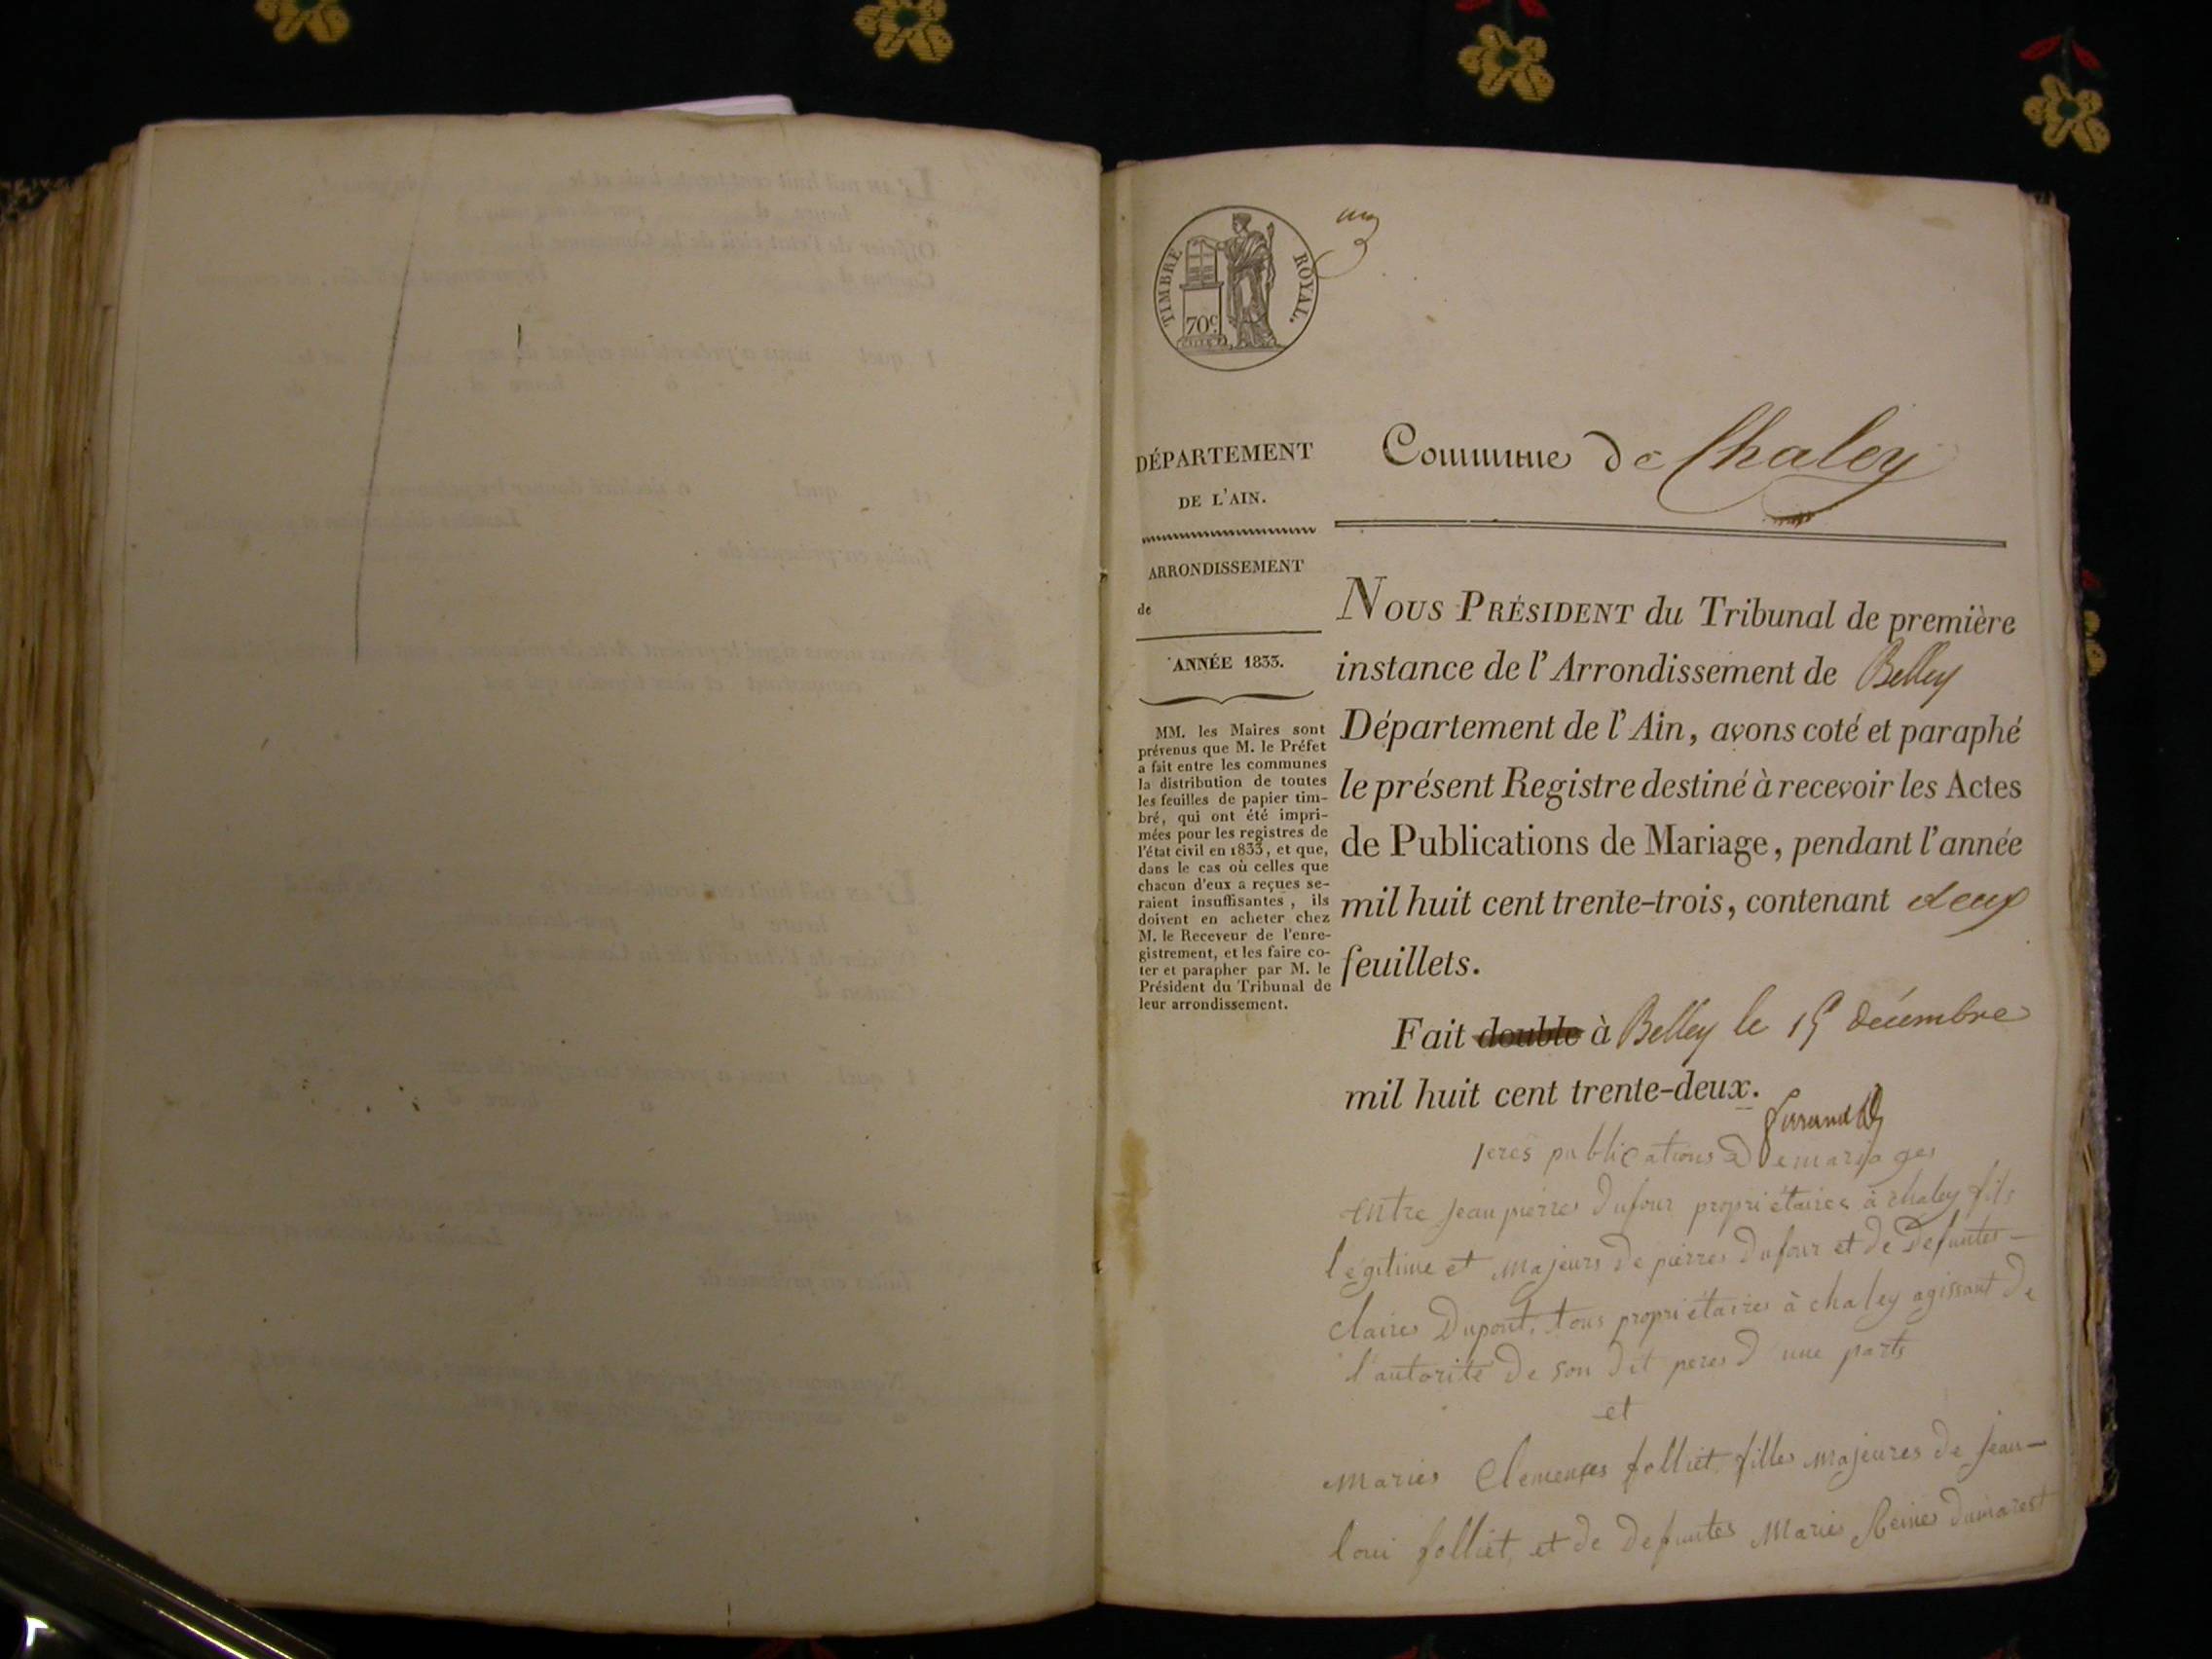 un
TIMBRE ROYAL.
70c.
DÉPARTEMENT
DE L'AIN.
ARRONDISSEMENT
de
ANNÉE 1833.
MM. les Maires sont
prévenus que M. le Préfet
a fait entre les communes
la distribution de toutes
les feuilles de papier tim-
bré, qui ont été impri-
mées pour les registres de
l'état civil en 1833, et que,
dans le cas où celles que
chacun d'eux a reçues se-
raient insuffisantes, ils
doivent en acheter chez
M. le Receveur de l'enre-
gistrement, et les faire co-
ter et parapher par M. le
Président du Tribunal de
leur arrondissement.
Commune de Chaley
NOUS PRÉSIDENT du Tribunal de première
instance de l'Arrondissement de Belley
Département de l'Ain, avons coté et paraphé
le présent Registre destiné à recevoir les Actes
de Publications de Mariage, pendant l'année
mil huit cent trente-trois, contenant deux
feuillets.
Fait double à Belley le 15 décembre
mil huit cent trente-deux.
1eres publications de mariages
entre jean pierres dufour propriétaires à chaley fils
légitime et majeurs de pierres dufour et de defuntes
claires Dupont, tous propriétaires à chaley agissant de
l'autorité de son dit peres d'une parts
et
maries Clemences folliet filles majeures de jean-
loui folliet, et de defuntes Maries Reines dumarest